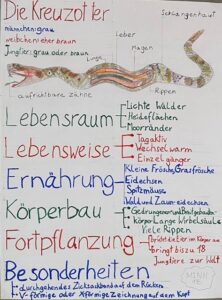 Die Kreuzotter
männchen: grau
weibchen: eher braun
Jungtier: grau oder braun
Schlangenhaut
Leber
Magen
Lunge
Rippen
aufrichtbare Zähne
Lebensraum
Lichte Wälder
Heideflächen
Moorränder
Lebensweise
Tagaktiv
Wechselwarm
Einzelgänger
Ernährung
Kleine Frösche, Grasfrösche
Eidechsen
Spitzmäuse
Wald und Zauneidechsen
Körperbau
Körper Lange Wirbelsäule
Viele Rippen
Fortpflanzung
brütet die Eier im Körper aus
bringt bis zu 18
Jungtiere zur Welt
Besonderheiten
durchgehendes Zickzackband auf dem Rücken
V-förmige oder Xförmige Zeichnung auf dem Kopf